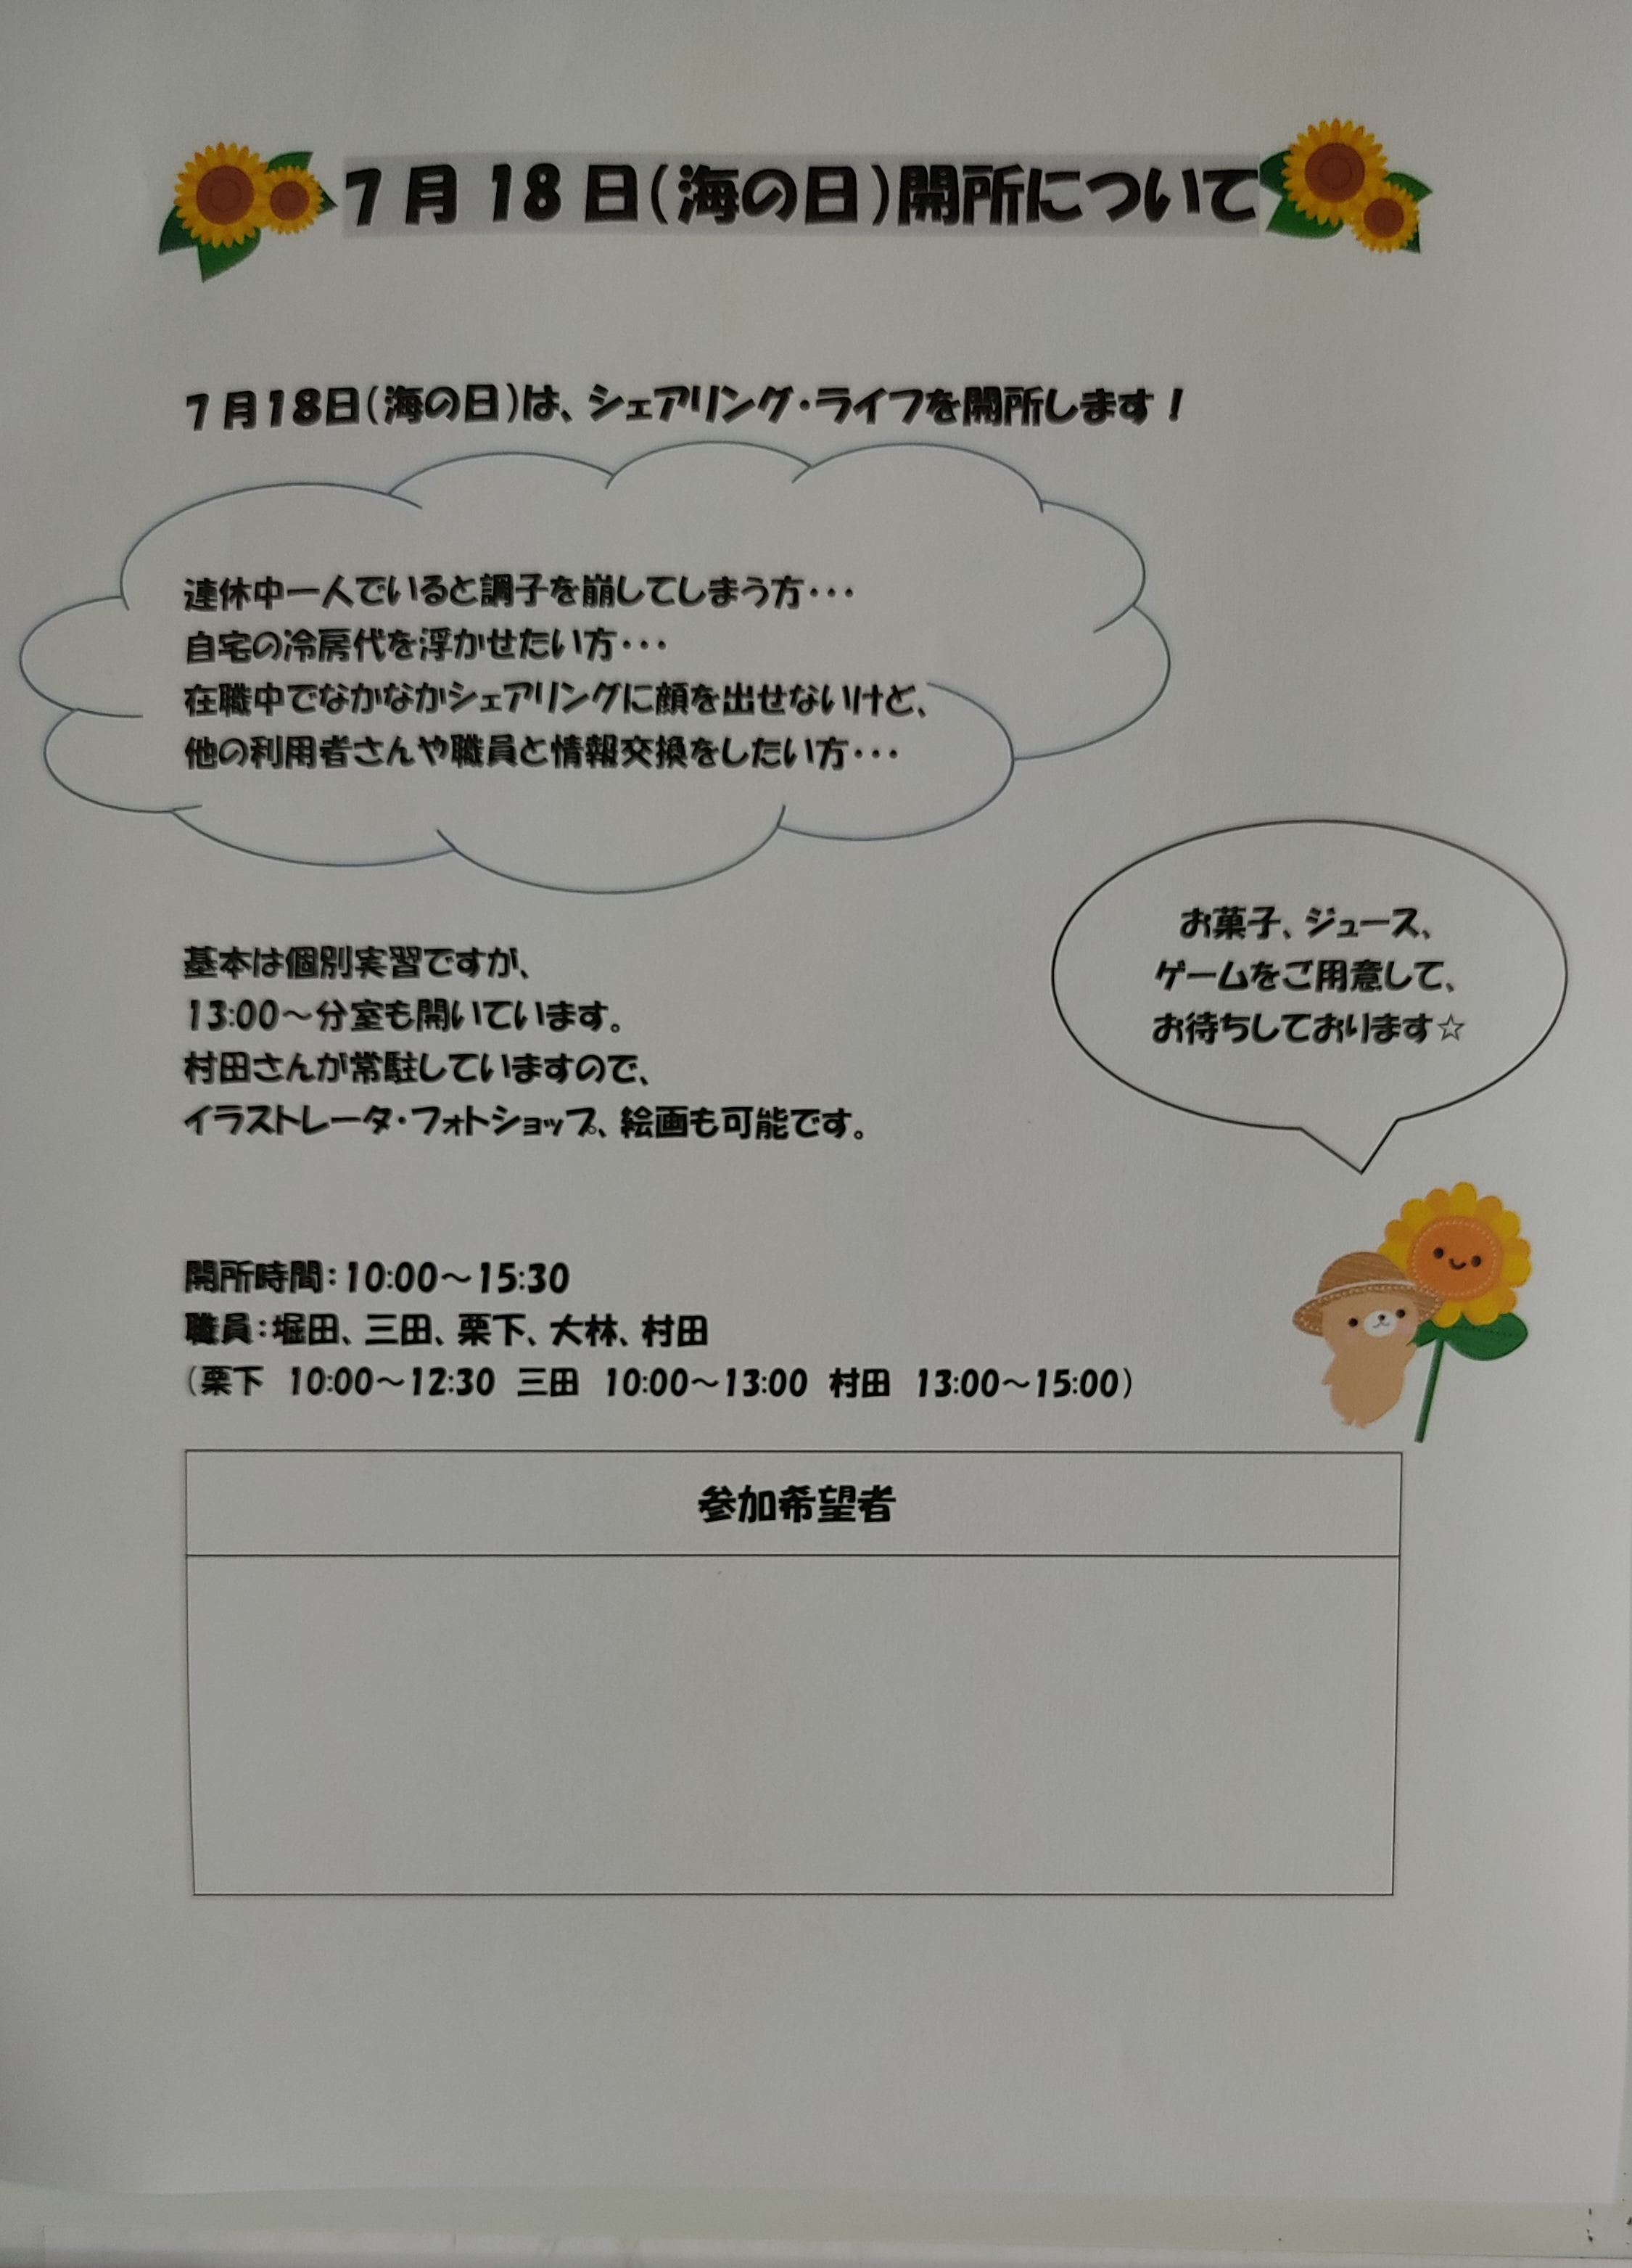 7月18日(海の日)開所について
7月18日(海の日)は、シェアリング・ライフを開所します!
連休中一人でいると調子を崩してしまう方・・・
自宅の冷房代を浮かせたい方・・・
在職中でなかなかシェアリングに顔を出せないけど、
他の利用者さんや職員と情報交換をしたい方・・・
お菓子、ジュース、
ゲームをご用意して、
お待ちしております☆
基本は個別実習ですが、
13:00~分室も開いています。
村田さんが常駐していますので、
イラストレータ・フォトショップ、絵画も可能です。
開所時間:10:00~15:30
職員:堀田、三田、栗下、大林、村田
(栗下 10:00~12:30 三田 10:00~13:00 村田 13:00~15:00)
参加希望者